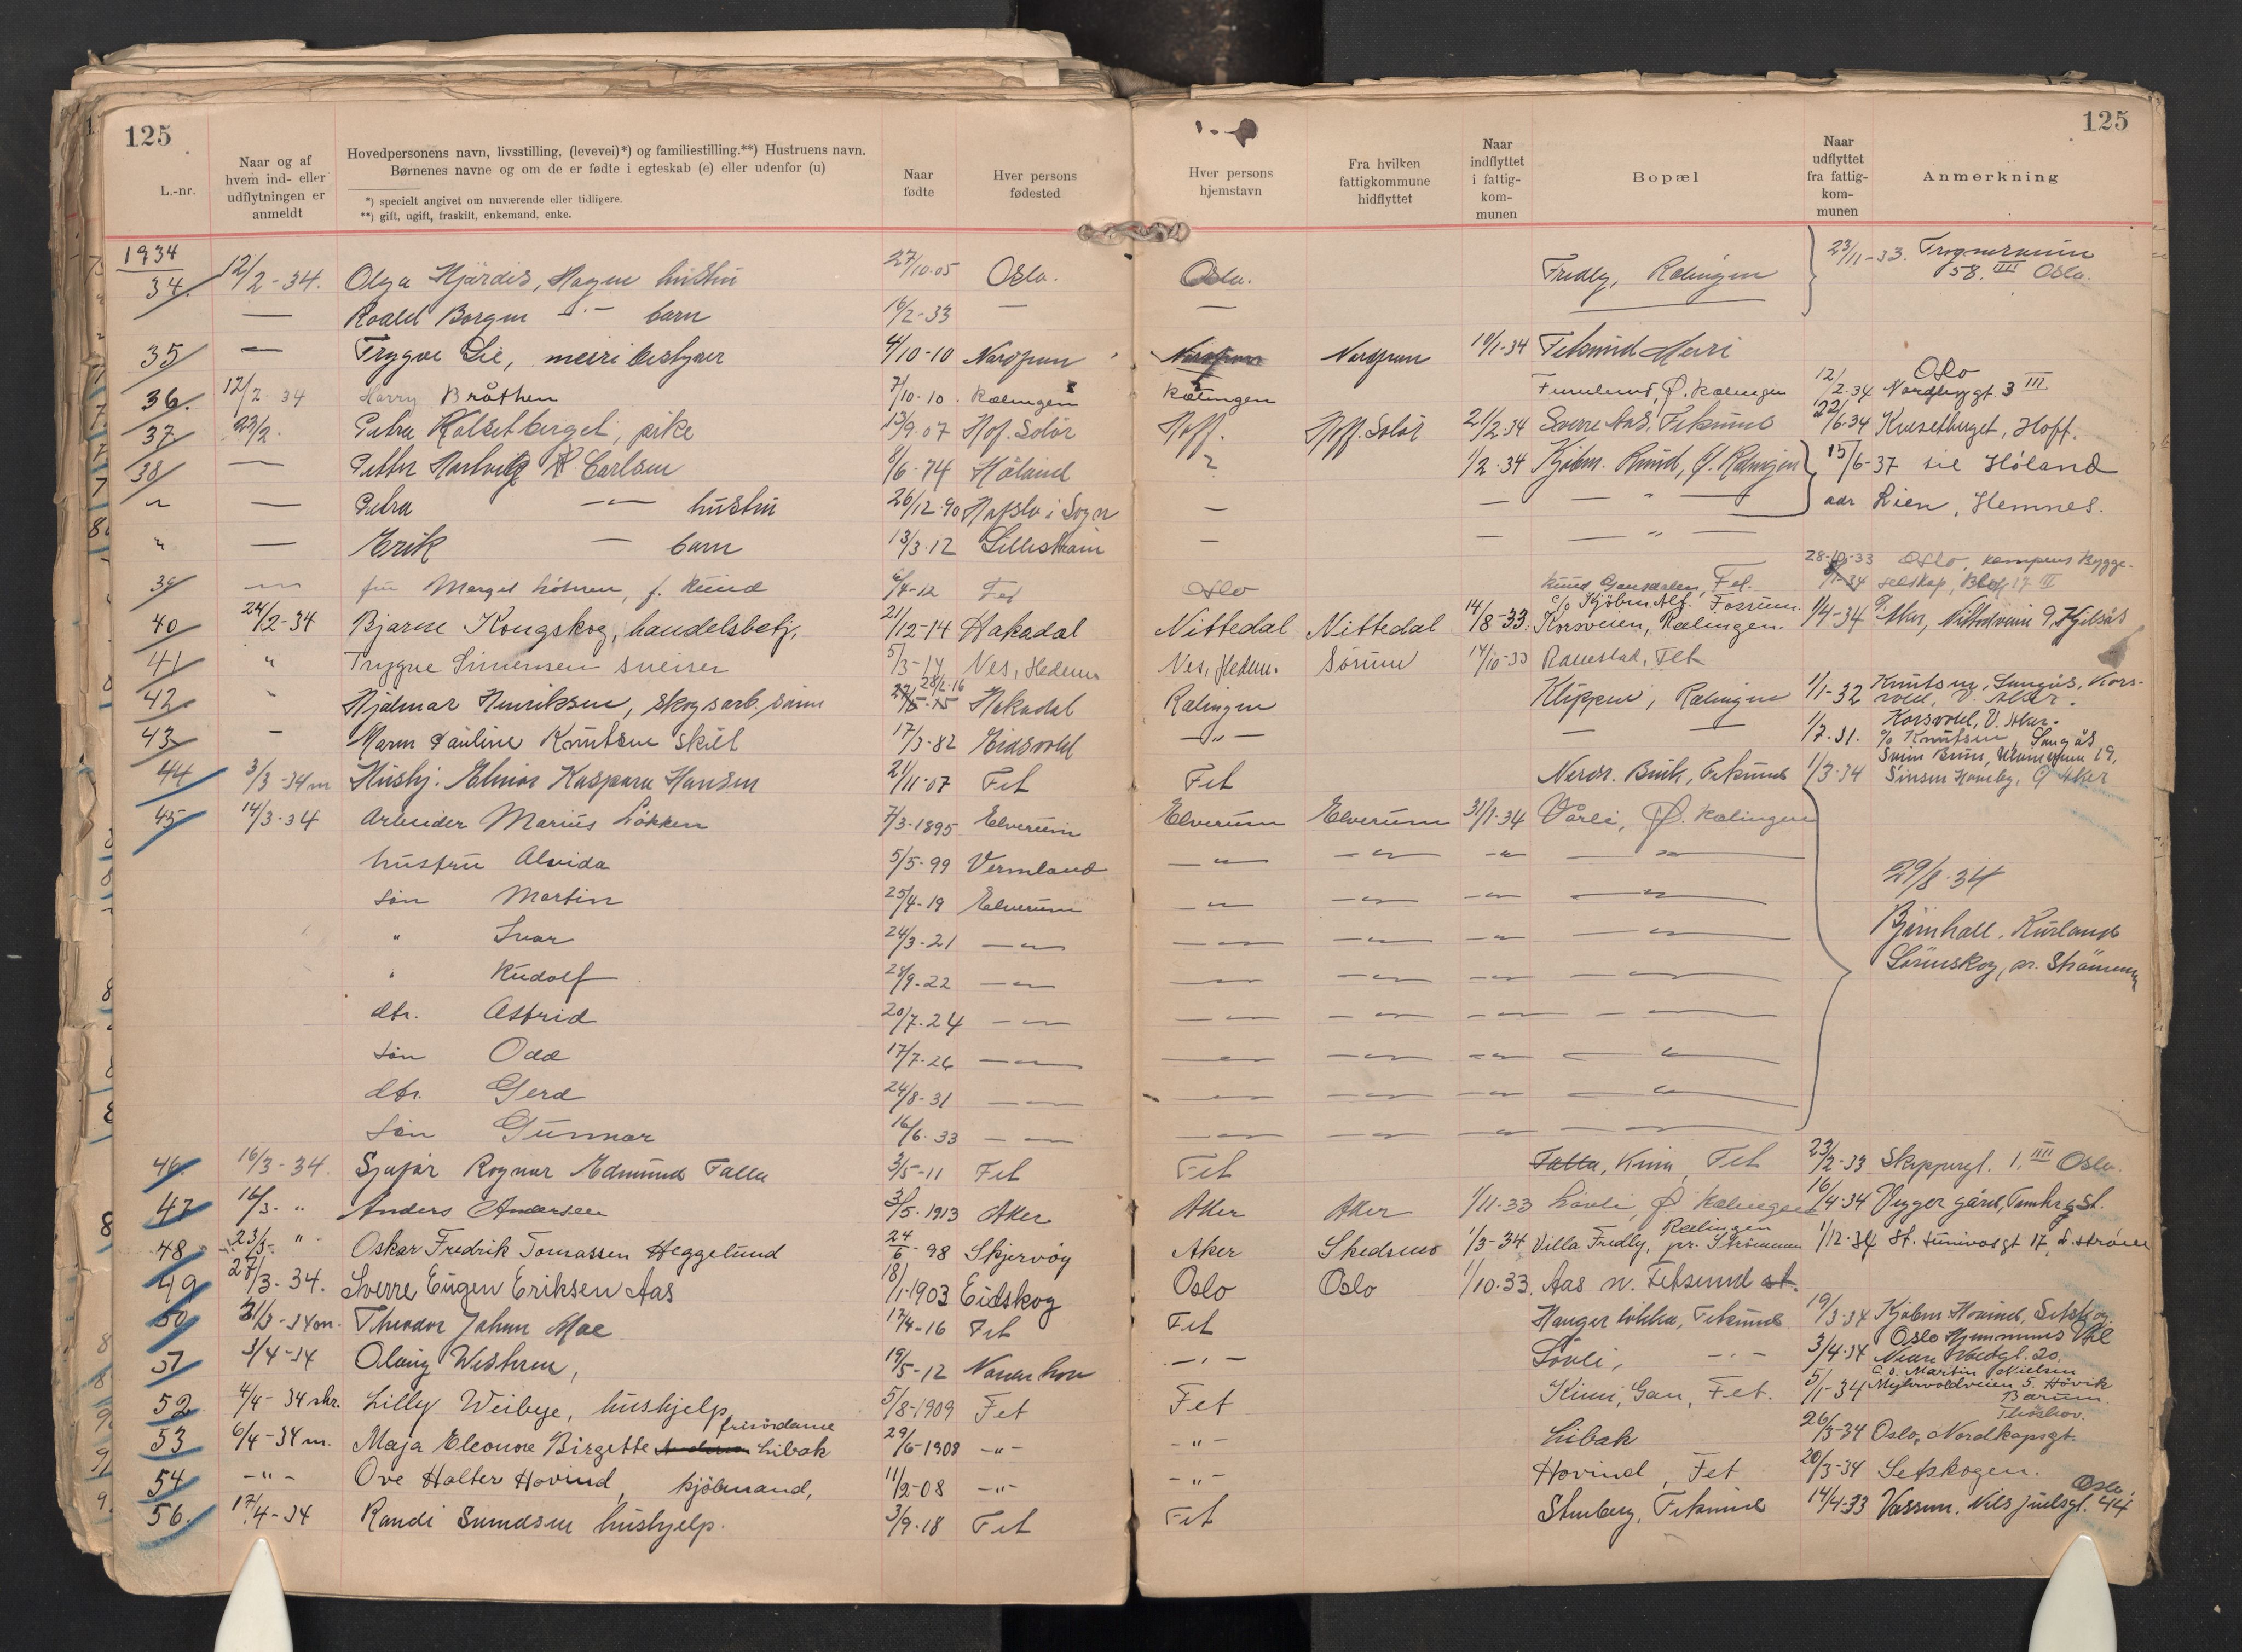 125
125
L.-nr.
Naar og af hvem ind- eller udflytningen er anmeldt
Hovedpersonens navn, livsstilling, (levevei)*) og familiestilling.**) Hustruens navn.
Børnenes navne og om de er fødte i egteskab (e) eller udenfor (u)
*) specielt angivet om nuværende eller tidligere.
**) gift, ugift, fraskilt, enkemand, enke.
Naar fødte
Hver persons fødested
Hver persons hjemstavn
Fra hvilken fattigkommune hidflyttet
Naar indflyttet i fattigkommunen
Bopæl
Naar udflyttet fra fattigkommunen
Anmerkning
1934
34. 12/2-34. Olga Hjördis, Hagen hustru 27/10-05 Oslo. Oslo. Fredly, Rælingen 23/11-33. 58. III Oslo.
— Roald Borgen -"- barn 16/2-33 — —
35 — Trygve Lie, meieribestyrer 4/10-10 19/1-34 Fetsund Meieri
36. 12/2 34 Harry Bråthen 7/10-10. Rælingen Rælingen Furulund, Ø. Rælingen 12/2-34 Oslo Nordbyggt. 3 III.
37 23/2. Petra, pike 13/9-07 Hof. Solör Hoff. Hoff. Solör 21/2-34 Sverre Aas, Fetsund 22/6-34 Hoff.
38 — Petter Hartvig R. Carlsen 8/6-74 Höland ? 1/2-34 Kjöbm. Rund, Ø. Rælingen 15/6-37 til Höland
" — Petra -"- hustru 26/12-90 Hafslo i Sogn — — — " — adr Lien, Hemnes.
" — Erik — barn 13/3-12 Lilleström — — — " —
39 — fru Margit f. Rund 6/4-12 Fet Oslo Fet. 28-10-33 Oslo, Kampens Bygge-
selskap, 17 II
40 24/2-34 Bjarne Kongskog, handelsbetj. 21/12-14 Hakadal Nittedal Nittedal 14/8-33. c/o Kjøbm. Alf. Fossum. Korsveien, Rælingen. 1/4-34
41 " Trygve Simensen sveiser 5/3-14 Nes, Hedem. Nes, Hedem. Sörum 14/10-33 Fet
42 " Hjalmar Henriksen, skogsarb. 28/2-16 Hakadal Rælingen Klippen, Rælingen 1/1-32 V. Aker.
43 - Maren Pauline Knutsen skilt 17/3-82 Eidsvold -"- — — 1/7-31. Korsvold, V. Aker. c/o Knutsen,
44 3/3-34m Hushj. Kaspara Hansen 21/11-07 Fet Fet Fetsund 1/3-34
45 14/3-34 Arbeider Marius Løkken 7/3-1895 Elverum Elverum Elverum 31/1-34 Vårli, Ø. Rælingen
hustru Alvida 5/5-99 Vermland -"- -"- -"- -"-
søn Martin 25/4-19 Elverum -"- -"- -"- -"- 29/8-34
" Ivar 24/3-21 -"- -"- -"- -"- -"- Bjørnhall. Rurland
" Rudolf 28/9-22 -"- — -"- -"- -"- Lörenskog, pr. Strömmen
dtr. Astrid 20/7-24 -"- -"- -"- -"- -"-
søn Odd 17/7-26 -"- — -"- -"- -"-
dtr. Gerd 24/8-31 — — -"- -"- -"-
søn Gunnar 16/6-33 — — -"- -"- -"-
46. 16/3-34. Sjaför Ragnar Edmund Falla 3/5-11 Fet Fet Falla, Fet 23/2-33 Skippergt. 1. IIII Oslo.
47 16/3- " Anders Andersen 3/5-1913 Aker Aker Aker 1/11-33 Lövli, Ø Rælingen 16/4-34
48 23/3- " Oskar Fredrik Tomassen Heggelund 24/6-98 Skjervöy Aker Skedsmo 1/3-34 Villa Fredly, Rælingen pr. Strömmen 1/12-34
49 27/3-34. Sverre Eugen Eriksen Aas 18/1-1903 Eidskog Oslo Oslo 1/10-33. Aas n. Fetsund st.
50 31/3-34m. Theodor Johan Moe 17/4-16 Fet Fet Hauger løkka, Fetsund 19/3-34 Kjöbm. Hovind, Setskog
51 3/4-34 Olaug Westeren, 19/5-12 -"- Lövli, -"- 3/4-34 Oslo
52 4/4-34 skr. Lilly Weibye, hushjelp 5/8-1909 Fet Fet Gan, Fet. 5/1-34 C. o. Martin Nielsen Myhrvoldveien 5. Hövik Bærum.
53 6/4-34 m. Maja Eleonore Birgette Libak frisördame 29/6-1908 -"- -"- Libak 26/3-34 Oslo, Nordkapsgt.
54 -"- Ove Halter Hovind, kjöbmand, 11/2-08 -"- -"- Hovind, Fet 20/3-34 Setskogen.
56. 17/4-34 Randi hushjelp. 3/9-18 Fet Fet Stenberg, Fetsund 14/4-33 Nils Juelsgt. 44 Oslo.